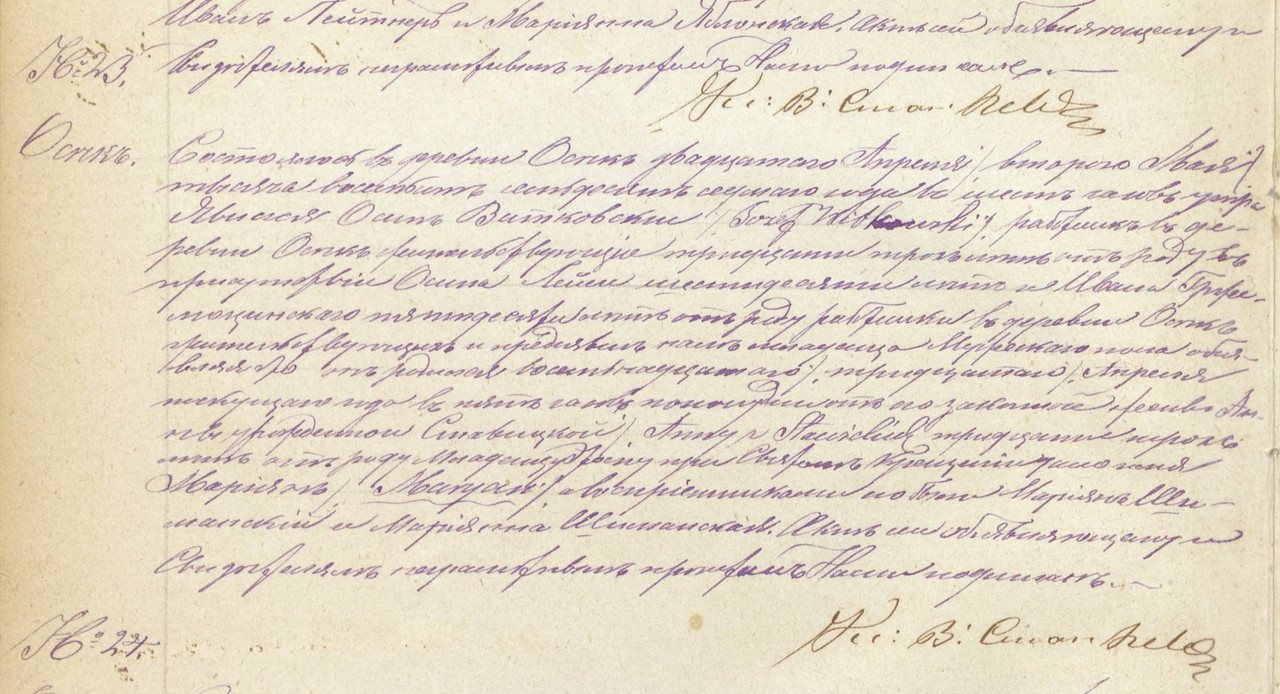 Иванъ Лейтнеръ и Маріянна Яблонская. Актъ сей объявляющему и
№ 23. Свидѣтелямъ неграмотнымъ прочтенъ Нами подписанъ.
Кс: В:
Оспкъ. Состоялось въ деревни двадцатаго Апрѣля / втораго Мая /
тысяча восемьсотъ семьдесятъ седмаго года въ шесть часовъ утра
Явился Осипъ Витковскій / Józef Witkowski / работникъ въ де-
ревни жительствующіе тридцати трехъ лѣтъ отъ роду въ
присутствіи Осипа шестидесяти лѣтъ и Ивана Грже-
мощинскаго пятидесяти лѣтъ отъ роду работники въ деревни
жительствующихъ и предъявилъ намъ младенца Мужескаго пола объя-
вляя что онъ родился восемнадцатаго / тридцатаго / Апрѣля
текущаго года въ пять часовъ отъ его законной жены Ан-
ны урожденной Ставицкой / Anny z / тридцати трехъ
лѣтъ отъ роду Младенцу этому при Святомъ Крещеніи дано имя
Маріянъ / Maryan / а воспріемниками его были Маріянъ Ши-
манскій и Маріянна Шиманская. Актъ сей объявляющему и
Свидѣтелямъ неграмотнымъ прочтенъ Нами подписанъ.
№ 24. Кс: В: